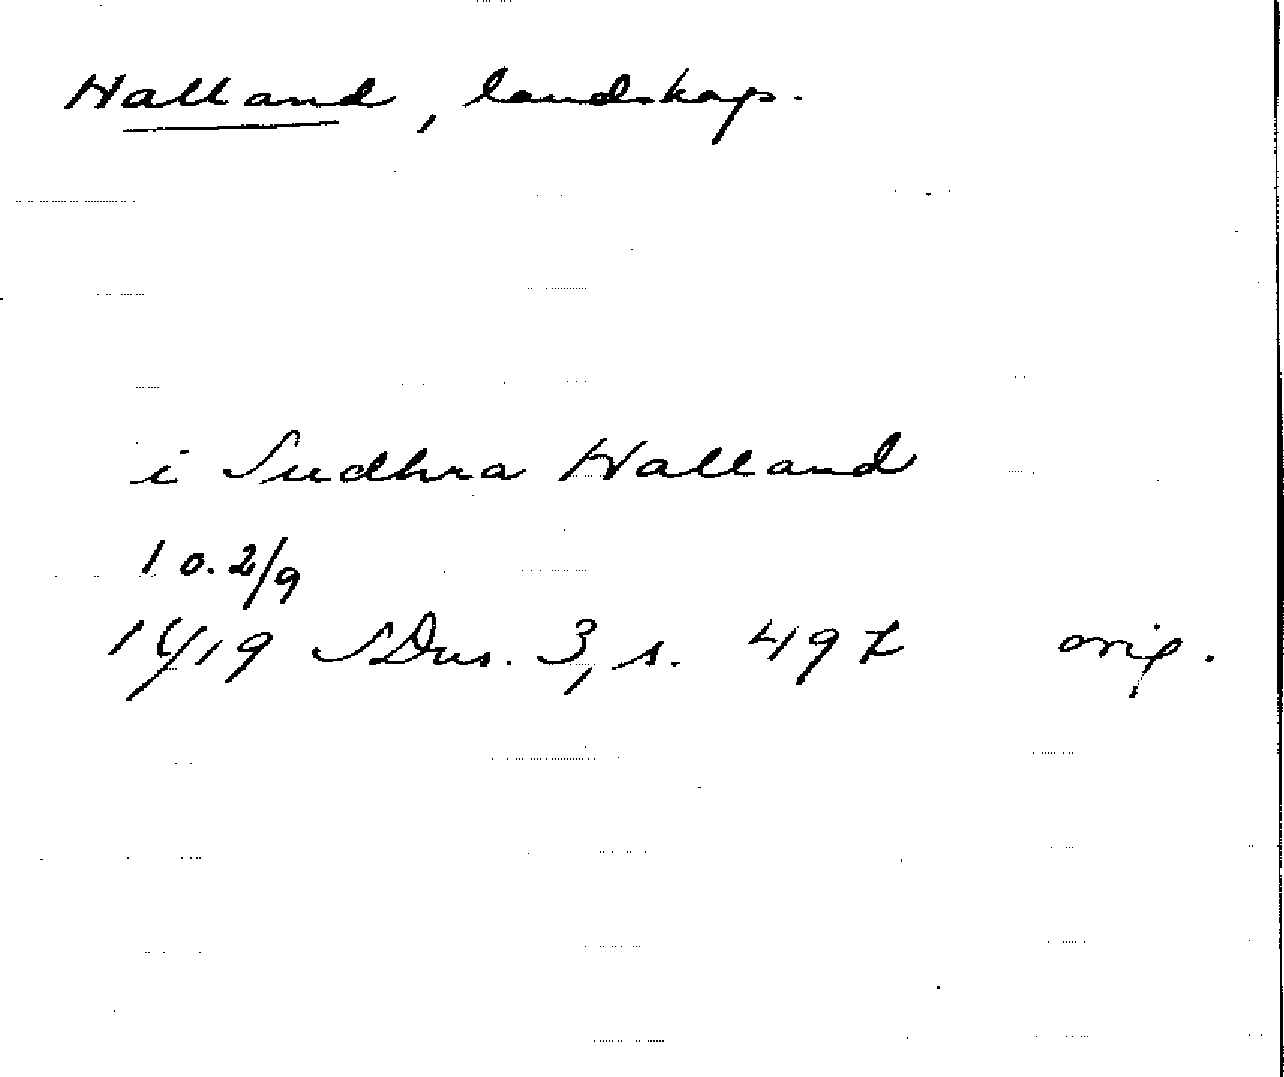 Halland, landskap.
i Sudhra Halland
1 o. 2/9
1419 SDns. 3, s. 497 orig.